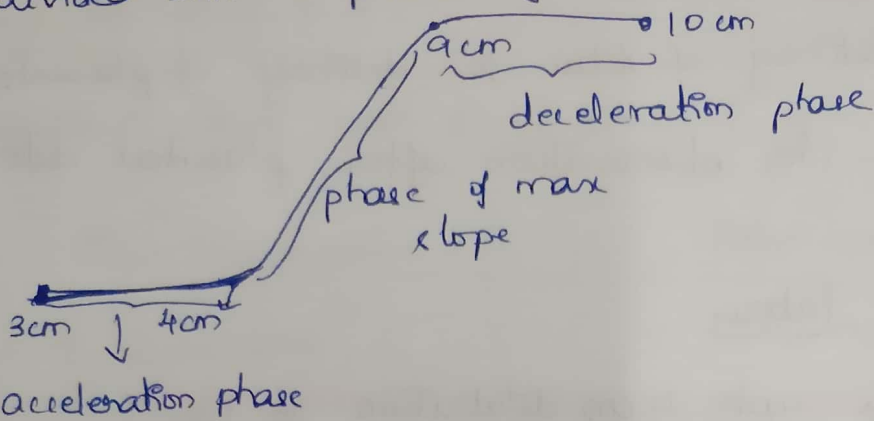 9cm
10 cm
deceleration phase
phase of max
slope
3cm
4cm
acceleration phase